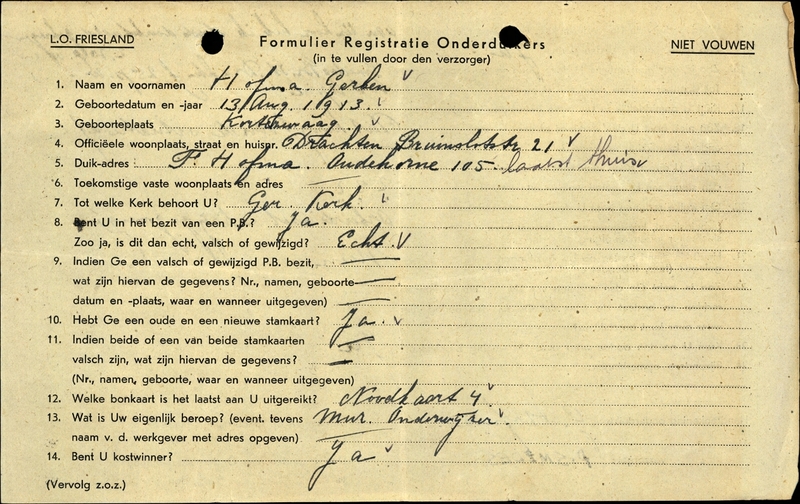 L.O. FRIESLAND
Formulier Registratie Onderduikers
NIET VOUWEN
(in te vullen door den verzorger)
1. Naam en voornamen Hofma. Gerben
2. Geboortedatum en -jaar 13 Aug. 1913.
3. Geboorteplaats Kortezwaag.
4. Officiëele woonplaats, straat en huisnr. Drachten Bruinslotstr 21
5. Duik-adres : F. Hofma. Oudehorne 105 laatst thuis
6. Toekomstige vaste woonplaats en adres —
7. Tot welke Kerk behoort U? Ger. Kerk.
8. Bent U in het bezit van een P.B.? Ja.
Zoo ja, is dit dan echt, valsch of gewijzigd? Echt.
9. Indien Ge een valsch of gewijzigd P.B. bezit, —
wat zijn hiervan de gegevens? Nr., namen, geboorte- —
datum en -plaats, waar en wanneer uitgegeven) —
10. Hebt Ge een oude en een nieuwe stamkaart? Ja.
11. Indien beide of een van beide stamkaarten —
valsch zijn, wat zijn hiervan de gegevens? —
(Nr., namen, geboorte, waar en wanneer uitgegeven)
12. Welke bonkaart is het laatst aan U uitgereikt? Noodkaart 4
13. Wat is Uw eigenlijk beroep? (event. tevens Mur. Onderwijzer
naam v. d. werkgever met adres opgeven) —
14. Bent U kostwinner? Ja
(Vervolg z.o.z.)